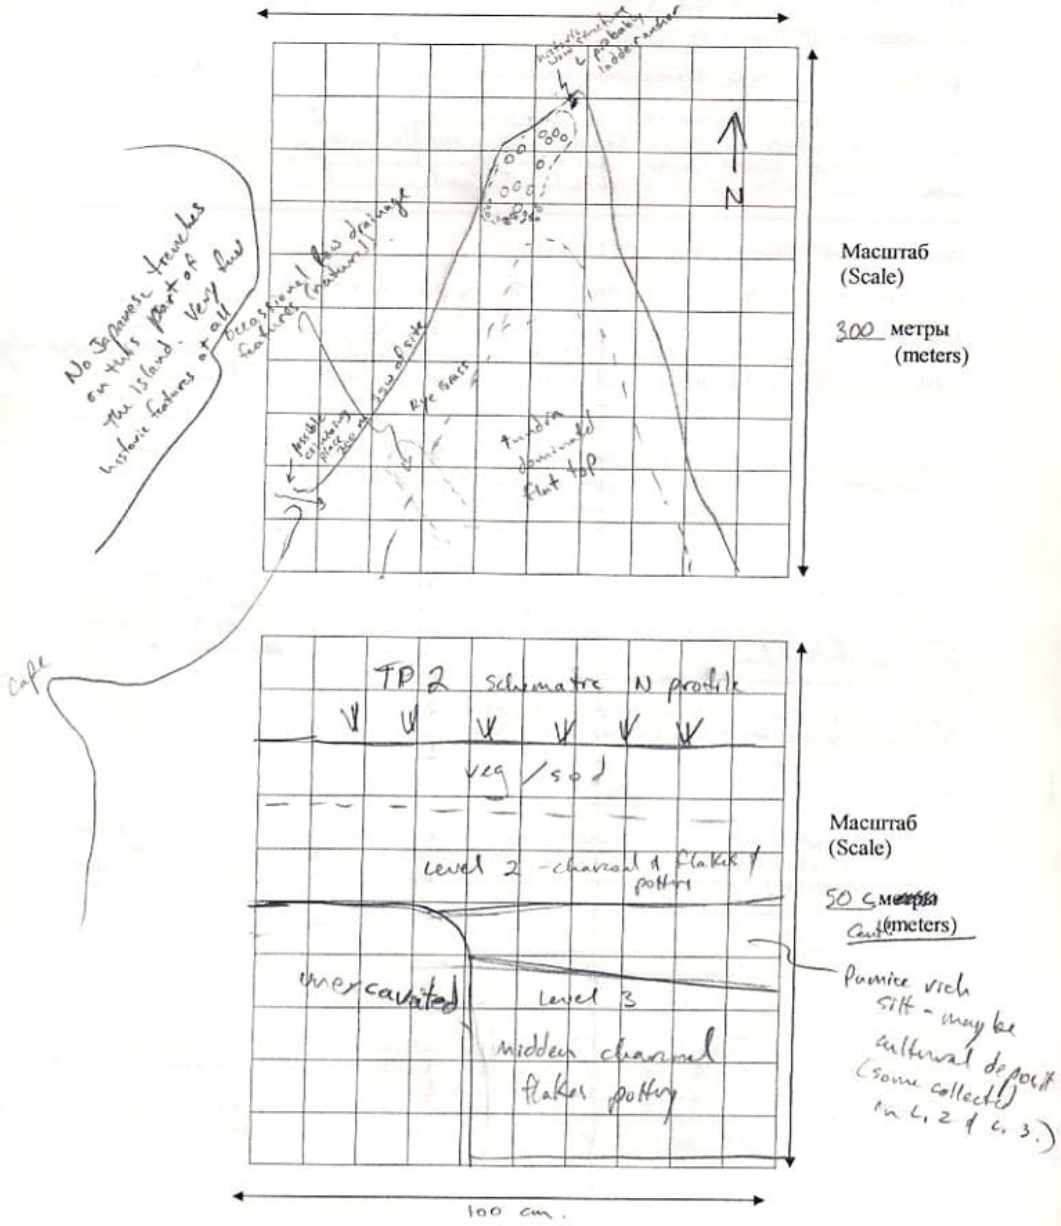 historic
wood structure
probably
ladder anchor
N
No Japanese trenches
on this part of
the island. Very few
historic features at all
occassional low drainage
features (natural)
Rye Grass
possible
place
tundra
dominated
flat top
Масштаб
(Scale)
300 метры
(meters)
cape
TP 2 schematic N profile
veg / sod
Level 2 - charcoal & flakes &
pottery
unexcavated
Level 3
midden charcoal
flakes pottery
Масштаб
(Scale)
50 c метры
Centi (meters)
Pumice rich
silt - may be
cultural deposit
(some collected
in L. 2 & L. 3.)
100 cm.